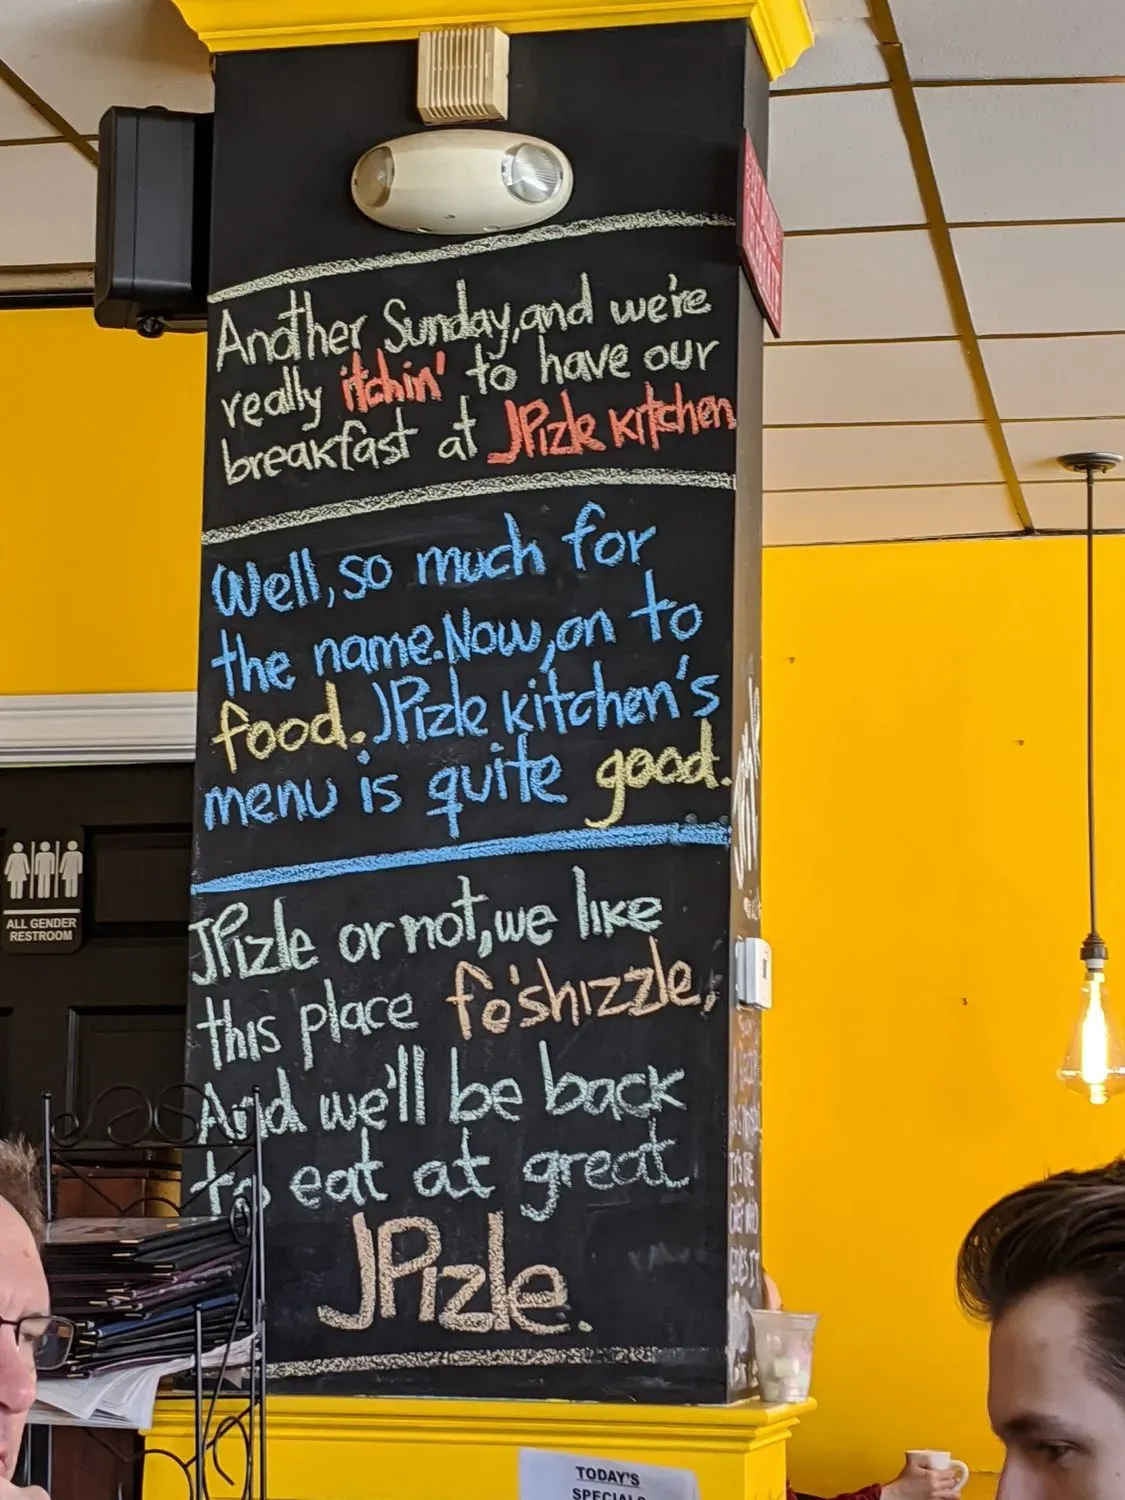 Another Sunday,and we're
really itchin' to have our
breakfast at JPizle kitchen
Well,so much for
the name.Now,on to
food. JPizle kitchen's
menu is quite good.
JPizle or not,we like
this place fo'shizzle,
And we'll be back
to eat at great
JPizle.
ALL GENDER
RESTROOM
TODAY'S
SPECIALS